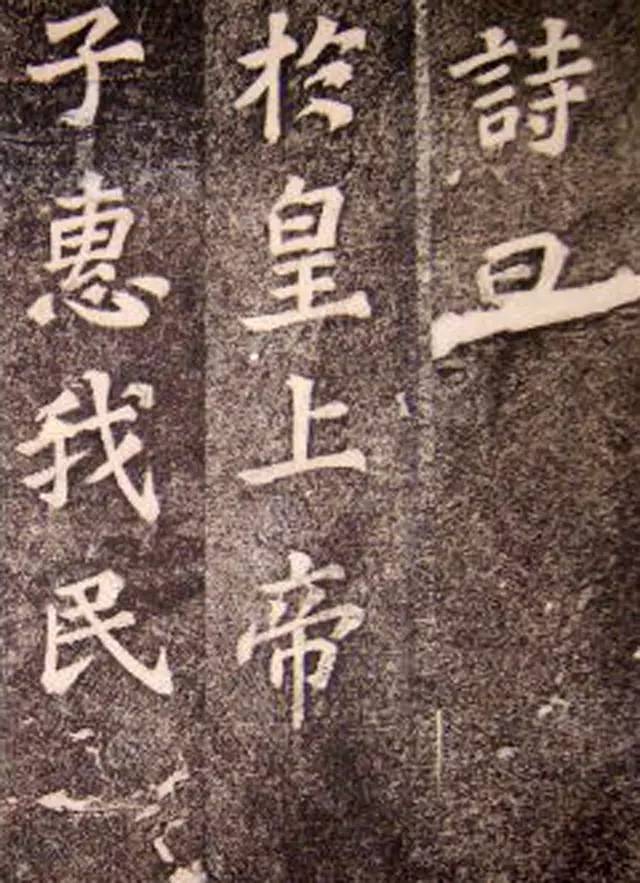 詩曰
於皇上帝
子惠我民